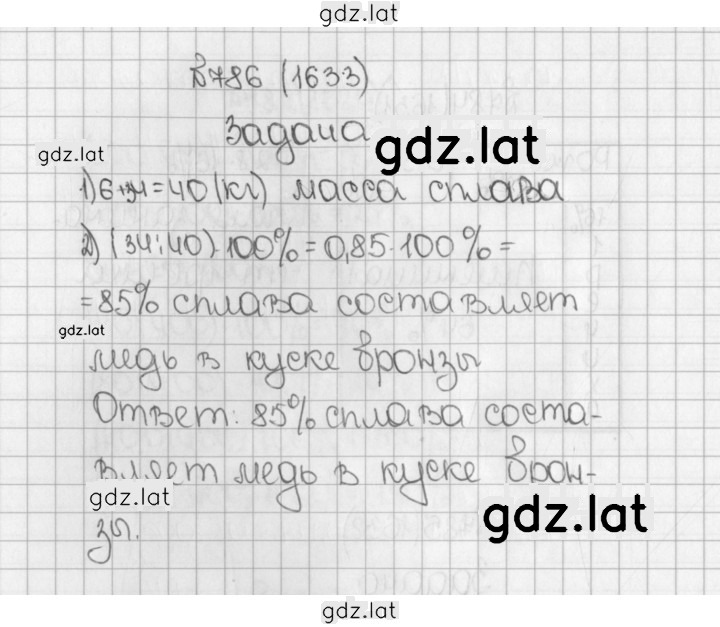 gdz.lat
№786 (1633)
Задача
gdz.lat
gdz.lat
1) 6+34=40 (кг) масса сплава
2) (34:40)·100%=0,85·100%=
=85% сплава составляет
gdz.lat
медь в куске бронзы
Ответ: 85% сплава соста-
вляет медь в куске брон-
gdz.lat
gdz.lat
зы.
gdz.lat